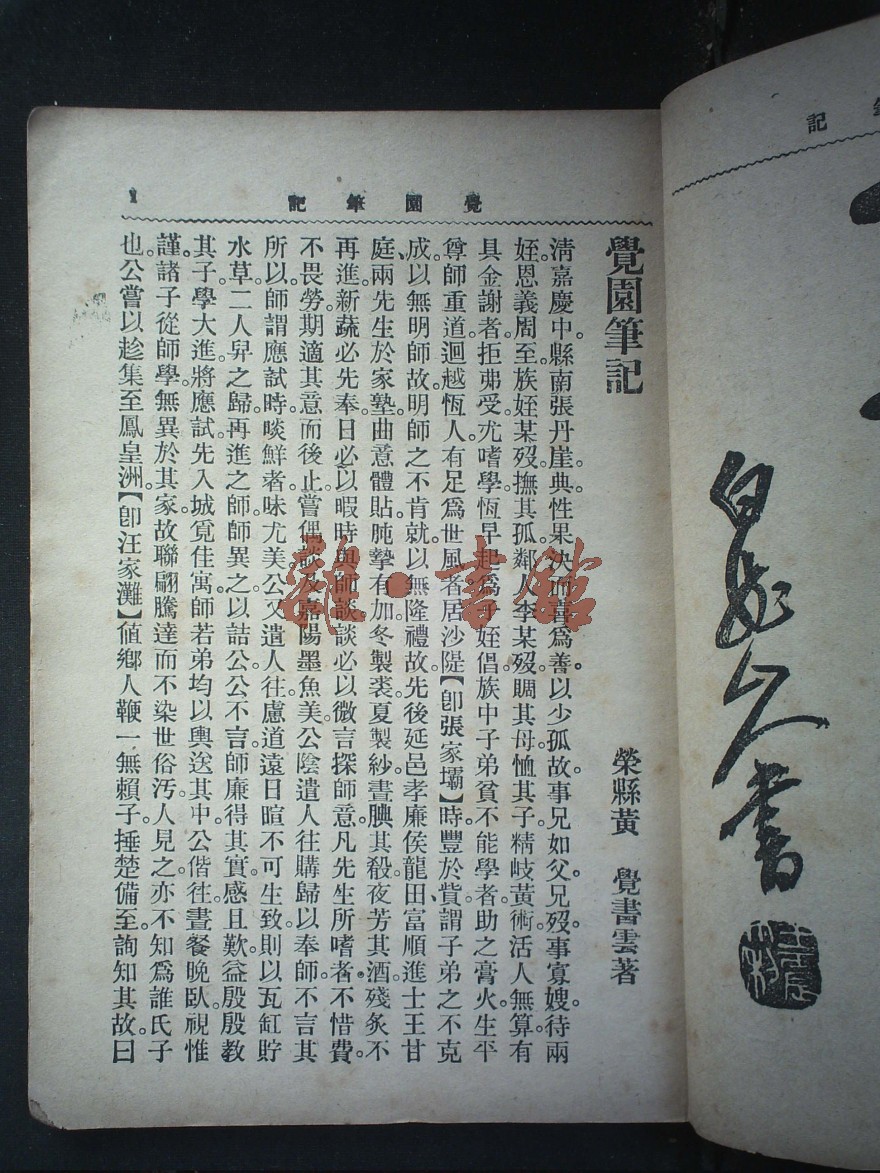 覺園筆記
1
覺園筆記
榮縣黃　覺書雲著
清嘉慶中。縣南張丹崖。典性果決而喜為善。以少孤。故事兄如父。兄歿。事寡嫂。待兩
姪。恩義周至。族姪某歿。撫其孤。鄰人李某歿。賙其母。恤其子。精岐黃術。活人無算。有
具金謝者。拒弗受。尤嗜學。恆早起為子姪倡。族中子弟貧不能學者。助之膏火。生平
尊師重道。迴越恆人。有足為世風者。居沙隄。【卽張家壩】時豐於貲。謂子弟之不克
成。以無明師故。明師之不肯就。以無隆禮故。先後延邑孝廉侯龍田、富順進士王甘
庭、兩先生於家塾。曲意體貼。肫摯有加。冬製裘。夏製紗。晝腆其殽。夜芳其酒。殘炙不
再進。新蔬必先奉。日必以暇時與師談。談必以微言探師意。凡先生所嗜者。不惜費。
不畏勞。期適其意而後止。嘗偶談及嘉陽墨魚美。公陰遣人往購歸以奉師。不言其
所以。師謂應試時。啖鮮者味尤美。公又遣人往。慮道遠日暄不可生致。則以瓦缸貯
水草。二人舁之歸。再進之師。師異之。以詰公。公不言。師廉得其實。感且歎。益殷殷教
其子。學大進。將應試。先入城覓佳寓。師若弟均以輿送其中。公偕往。晝餐晚臥。視惟
謹。諸子從師學。無異於其家。故聯翩騰達。而不染世俗汚。人見之。亦不知為誰氏子
也。公嘗以趁集至鳳皇洲。【卽汪家灘】値鄉人鞭一無賴子。捶楚備至。詢知其故。曰
記
書
雜·書館